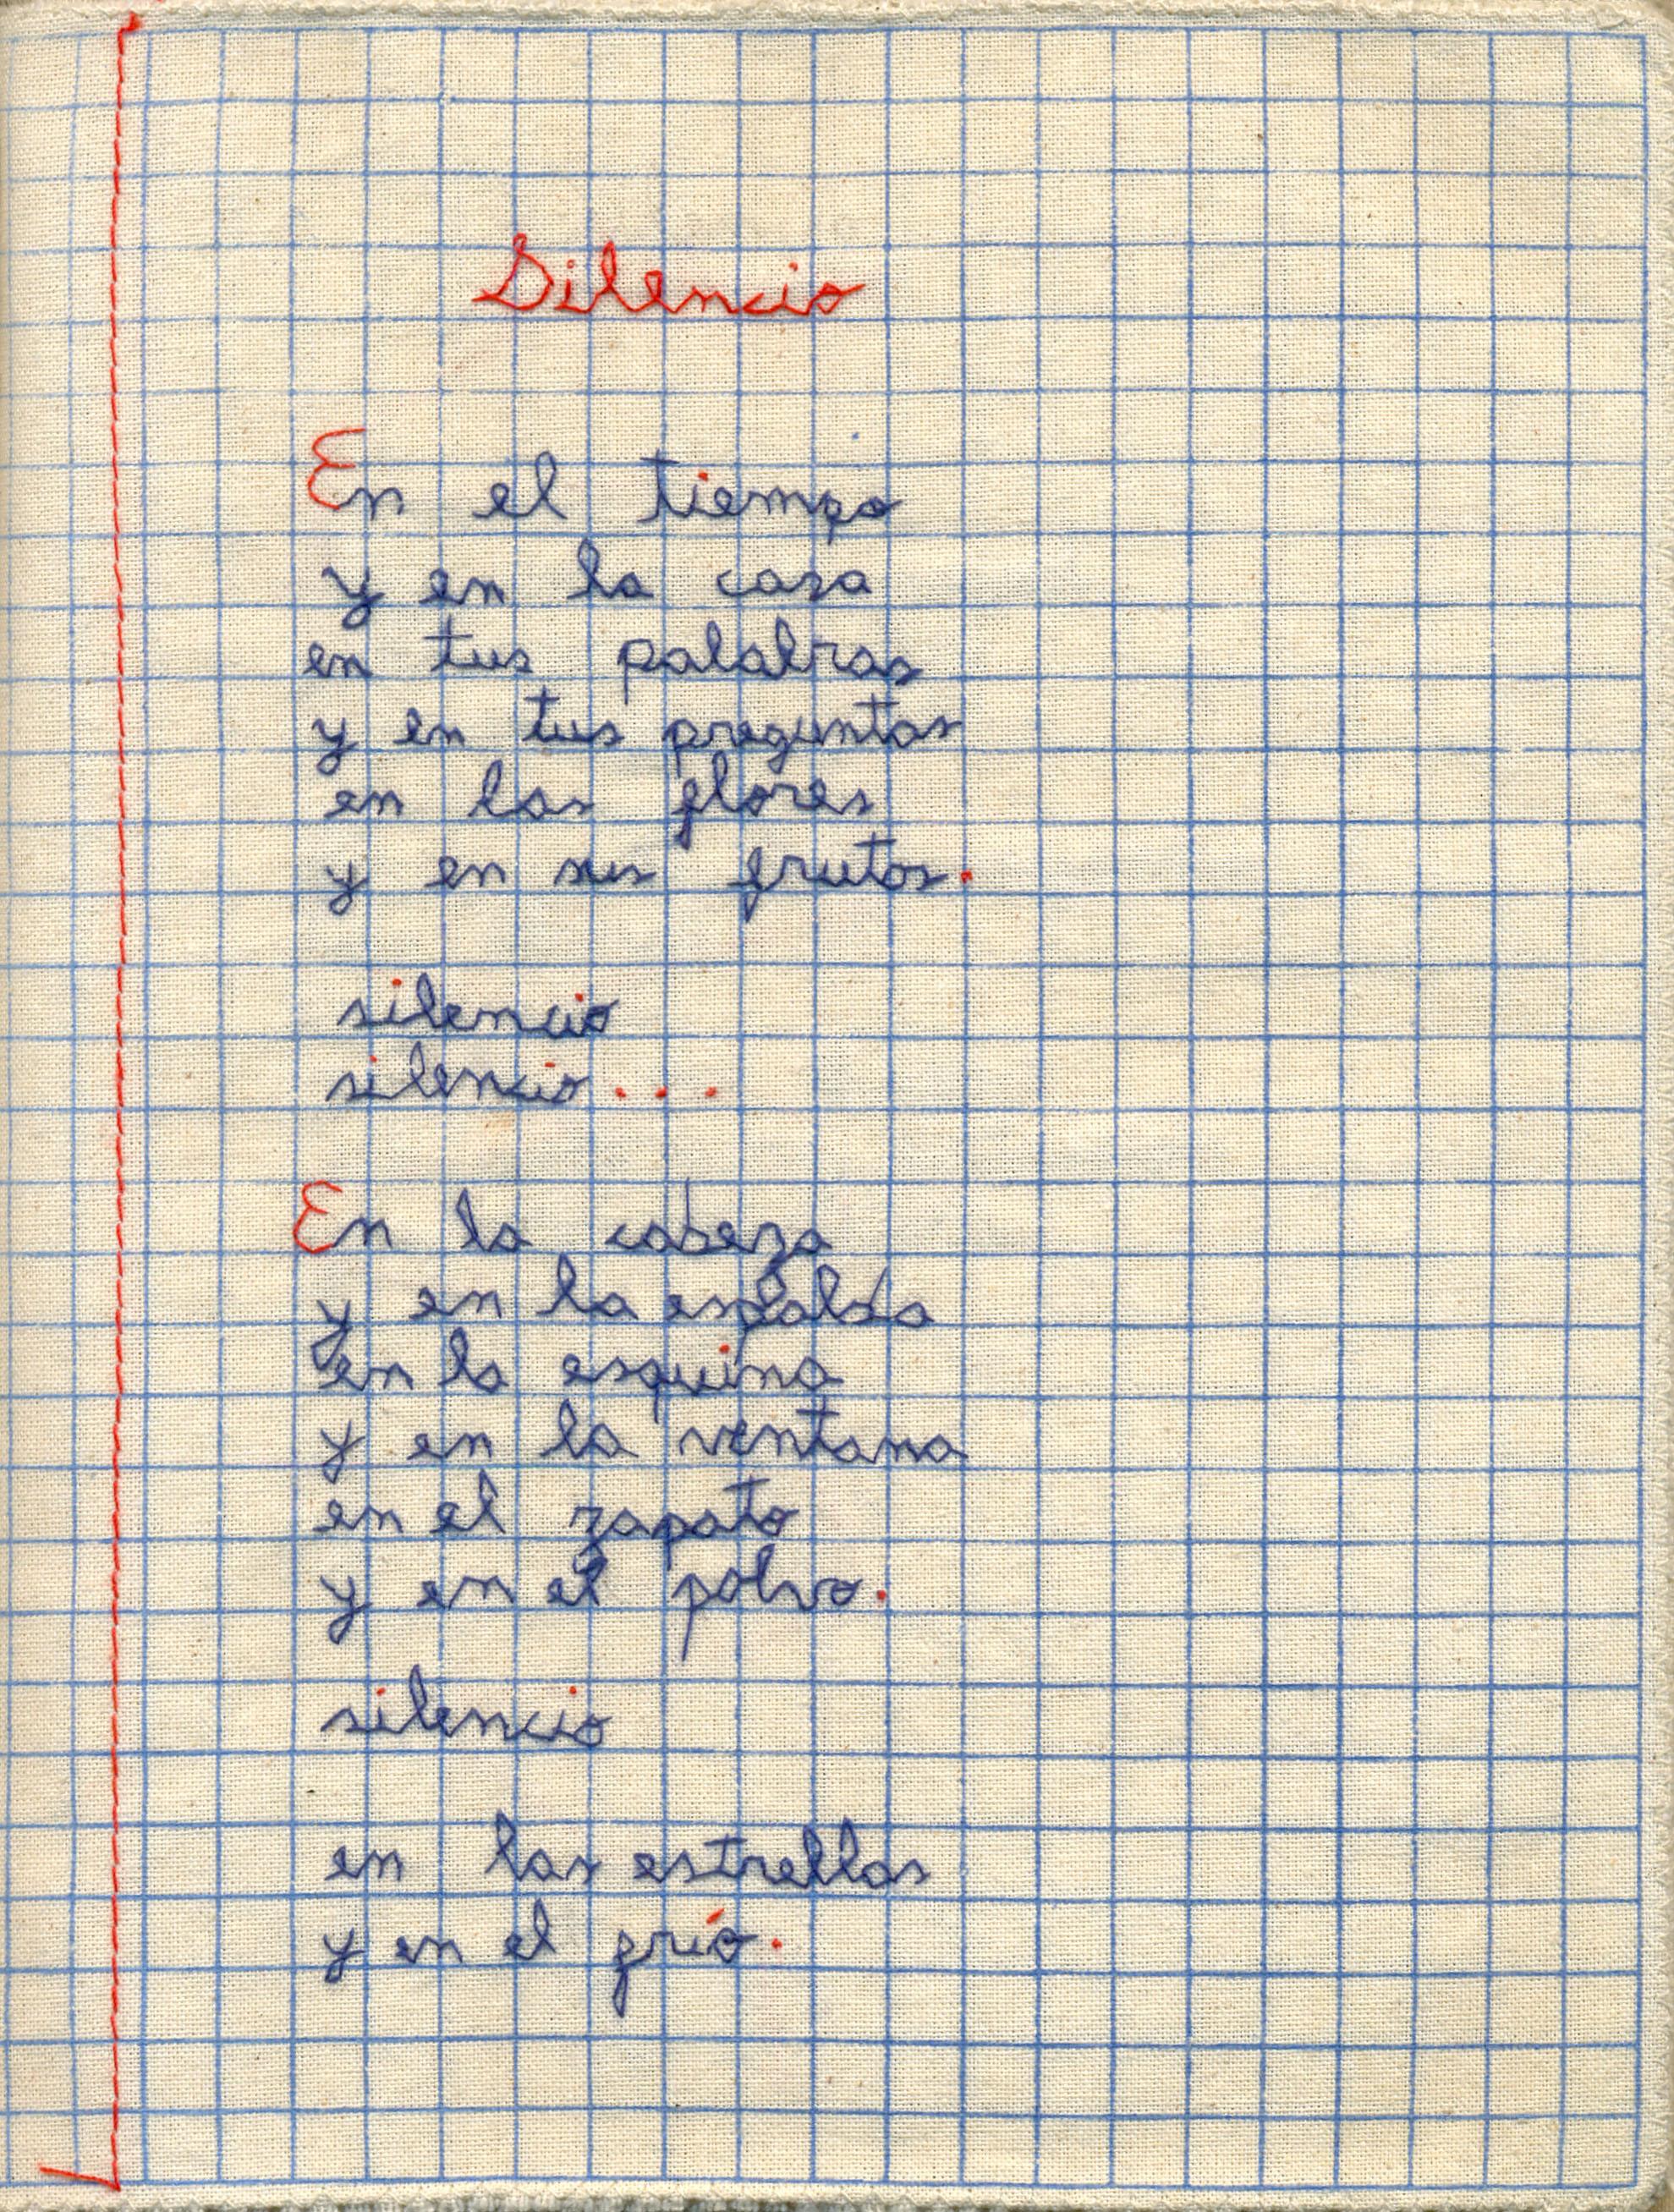 Silencio
En el tiempo
y en la casa
en tus palabras
y en tus preguntas
en las flores
y en sus frutos.
silencio
silencio...
En la cabeza
y en la espalda
en la esquina
y en la ventana
en el zapato
y en el polvo.
silencio
en las estrellas
y en el frió.